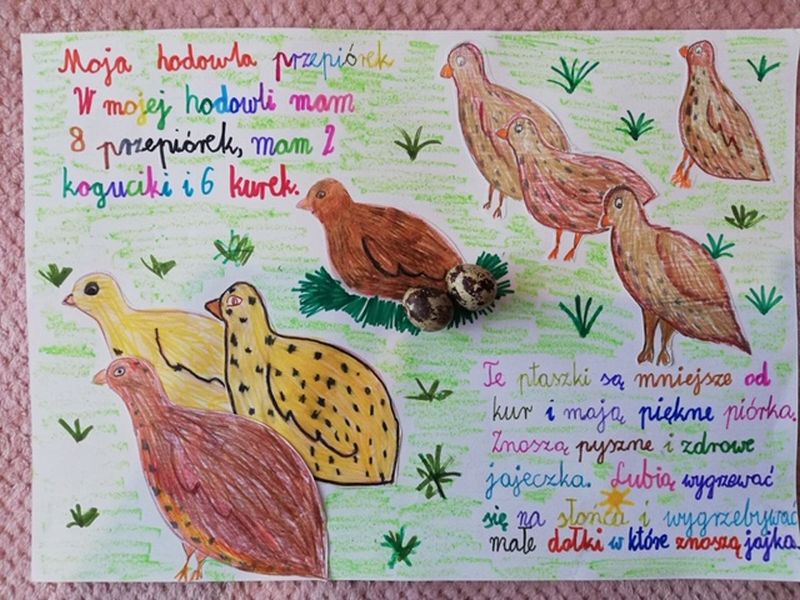 Moja hodowla przepiórek
W mojej hodowli mam
8 przepiórek, mam 2
koguciki i 6 kurek.
Te ptaszki są mniejsze od
kur i mają piękne piórka.
Znoszą pyszne i zdrowe
jajeczka. Lubią wygrzewać
się na słońcu i wygrzebywać
małe dołki w które znoszą jajka.